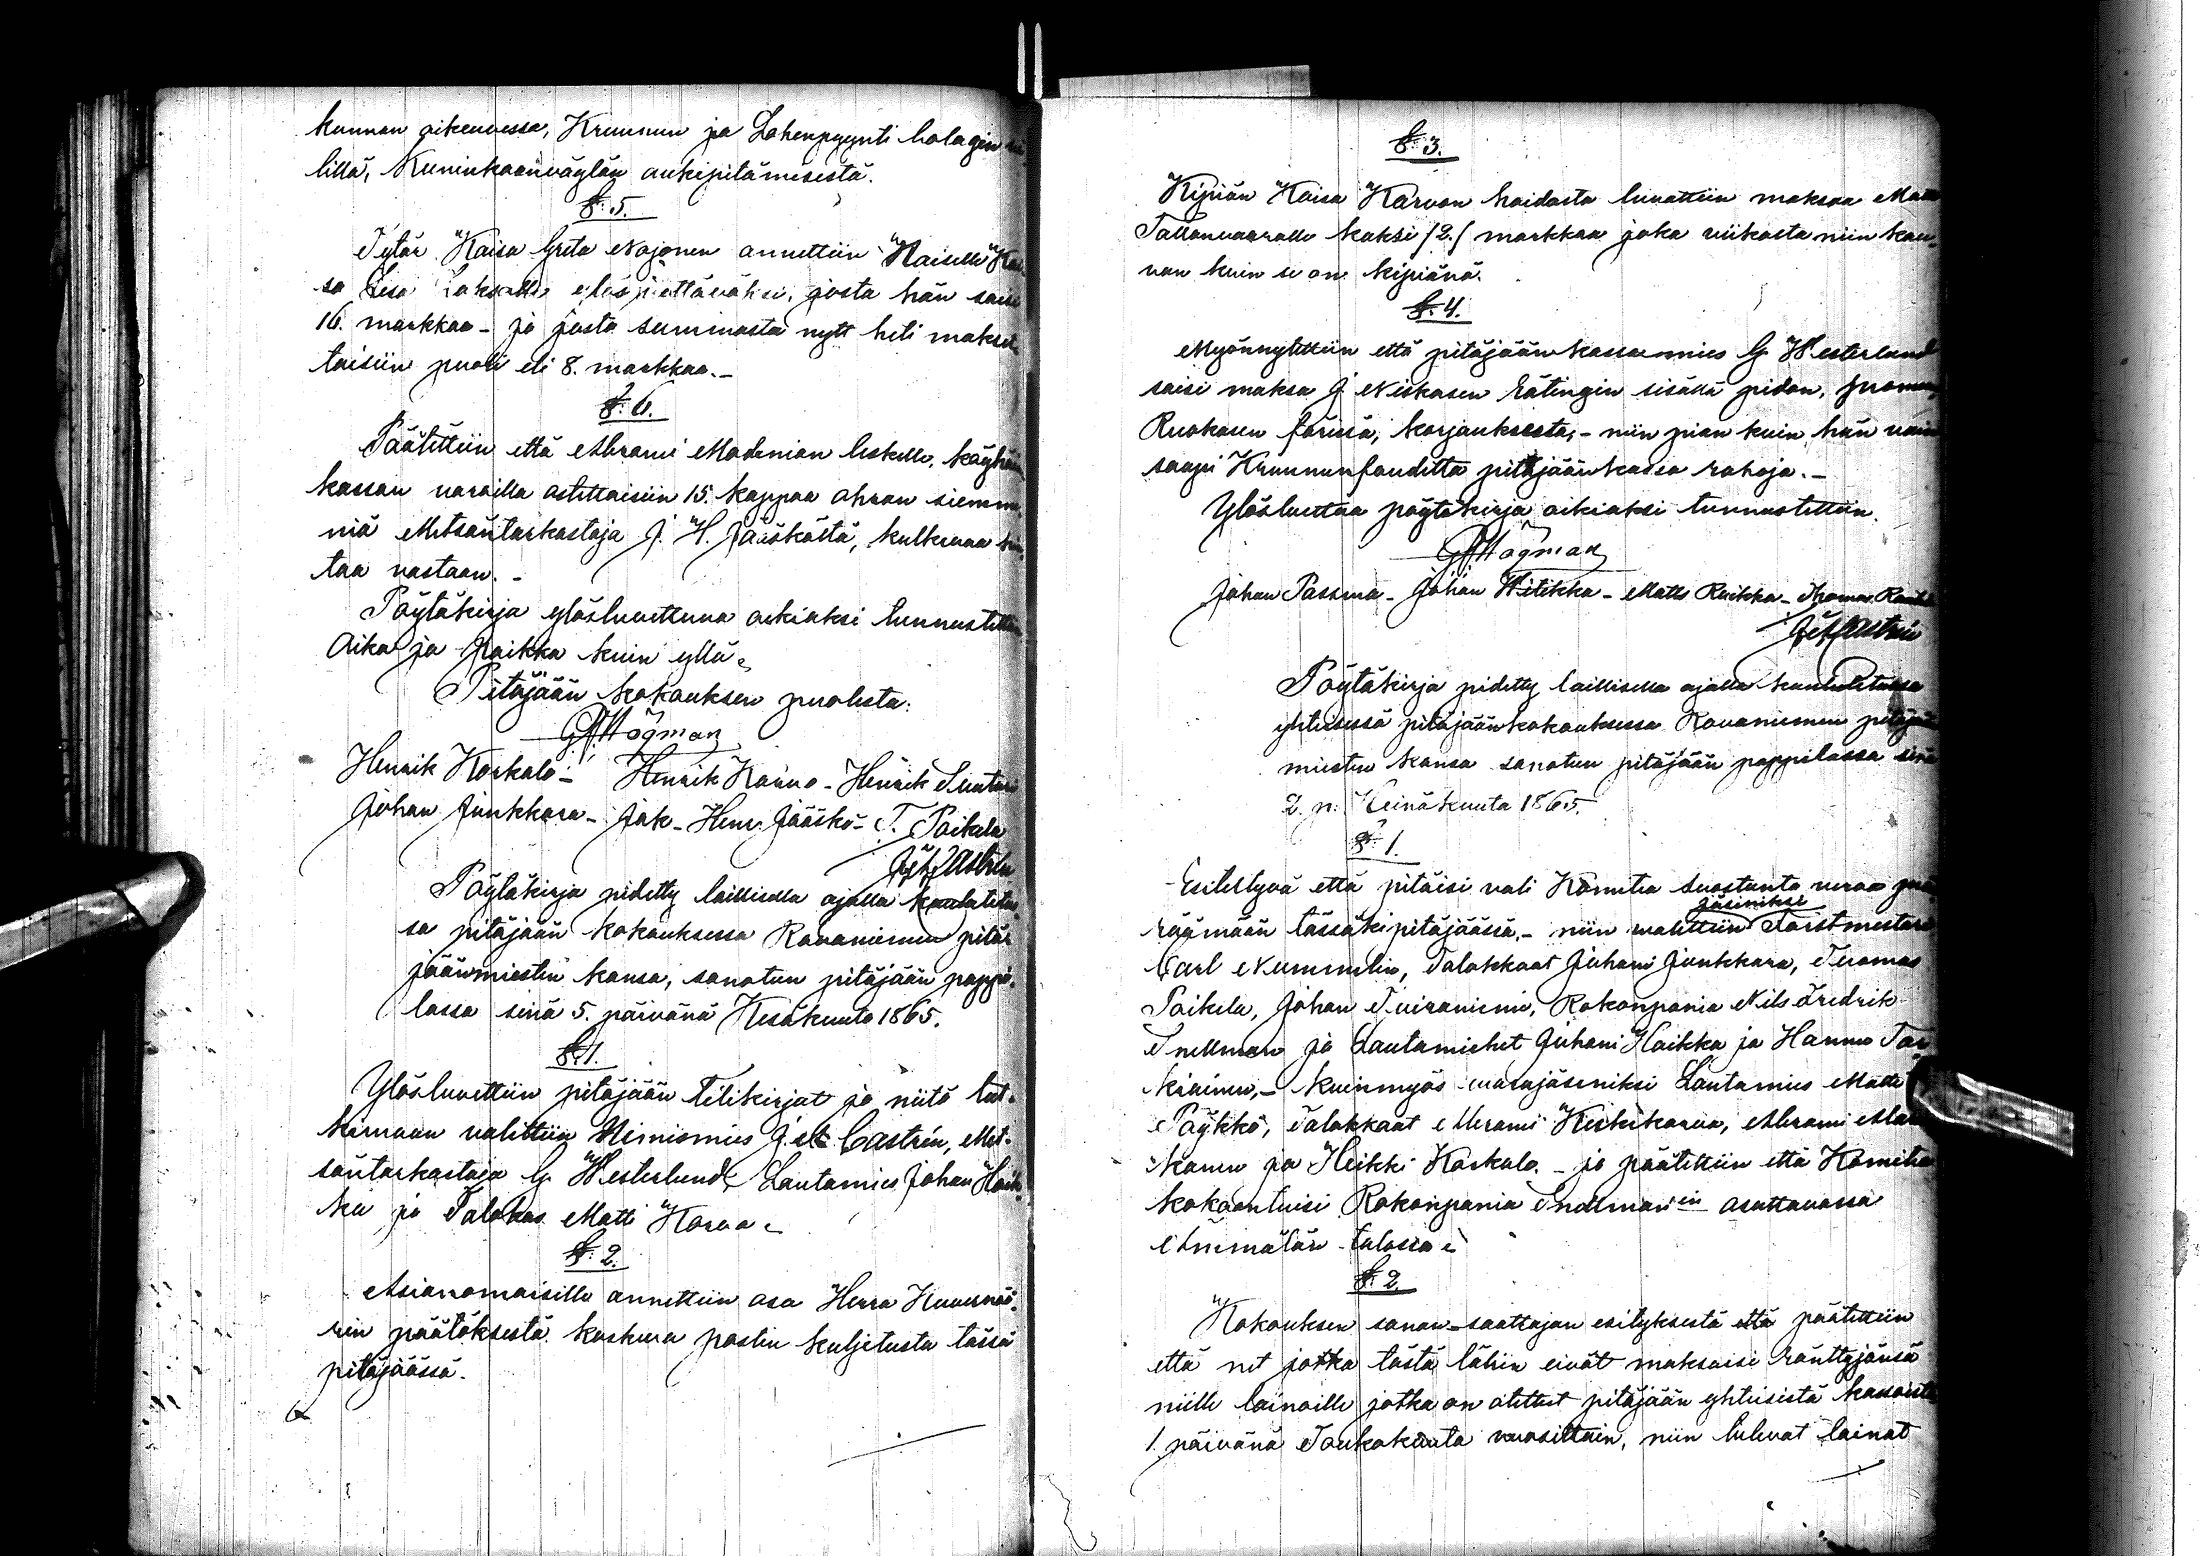 kunnan oikeudessa, Kruunun ja Lohenpyynti bolagin
lillä, Kuninkaanväylän aukipitämisestä.
§. 5.
Tytär Kaisa Greta Najonen annettiin Naiselle
sa Lisa elospiettäväksi, josta hän saisi
16. markkaa - ja josta summasta nytt heti makset
taisiin puoli eli 8. markkaa. -
§. 6.
Päätettiin että Abrami Modinian leskelle, köyhäin
kassan varoilla ostettaisiin 15. kappaa ohran siemen
niä Metsäntarkastaja J. H. Jääsköltä, kulkevaa hin
taa vastaan. -
Pöytäkirja ylösluettuna oikiaksi tunnustettiin
Aika ja paikka kuin yllä.
Pitäjään kokouksen puolesta:
G. Högman
Henrik Korkalo - Henrik Karvo - Henrik Suutari
Johan Junkkara - Jak. Henr. Jääskö - T. Poikela
Castrén
Pöytäkirja pidetty laillisella ajalla kuulutetus
sa pitäjään kokouksessa Rovaniemen pitä
jäänmiesten kansa, sanotun pitäjään pappi
lassa sinä 5. päivänä Kesäkuuta 1865.
§. 1.
Ylösluvettiin pitäjään Tilikirjat ja niitä tut-
kimaan valittiin Nimismies J. A. Castrén, Met-
säntarkastaja G. Westerlund, Lautamies Johan Haik
ka ja Talokas Matti Korva.
§. 2.
Asianomaisille annettiin osa Herra Kuvernöö-
rin päätöksestä koskeva postin kuljetusta tässä
pitäjäässä.
§. 3.
Kipiän Kaisa Karvon hoidosta luvattiin maksaa Matti
Tallavaaralle kaksi /2./ markkaa joka viikosta niin kau-
van kuin se on kipiänä.
§. 4.
Myönnytettiin että pitäjäänkassanmies G. Westerlund
saisi maksa J. Niskasen rätingin sisällä pidon,
Ruokasen färissä, korjauksesta, - niin pian kuin hän vaan
saapi Kruununfouditta pitäjäänkassa rahoja. -
Ylösluettua pöytäkirja oikiaksi tunnustettiin.
G. Högman
Johan Passma - Johan Hitikka - Matts Ruikka - Thomas
Castrén
Pöytäkirja pidetty laillisella ajalla kuulutetussa
yhteisessä pitäjäänkokouksessa Rovaniemen pitäjään
miesten kansa sanotun pitäjään pappilassa sinä
2. p. Heinäkuuta 1865.
§. 1.
Esitettyvä että pitäisi vali Komitea suostunta veroa
räämään tässäki pitäjäässä, - niin valittiin jäseniksi Forstmestari
Carl Nummelin, Talokkaat Juhani Junkkara, Tuomas
Poikela, Johan Tuiraniemi, Kokonpania Nils Fredrik
Snellman ja Lautamiehet Juhani Haikka ja Hannu Tar
kiainen, - kuinmyös varajäseniksi Lautamies Matti
Pöykkö, Talokkaat Abrami Keskikarva, Abrami
kanen ja Heikki Korkalo. - ja päätettiin että Komitea
kokoontuisi Rokonpania Snellman'in asuttavassa
Ämmälän talossa.
§. 2.
Kokouksen sanan-saattajan esityksestä että päätettiin
että net jotka tästä lähin eivät maksaisi ränttyjänsä
niille lainoille jotka on otettut pitäjään yhteisistä kassoista
1. päivänä Toukokuuta vuosittain, niin tulevat lainat